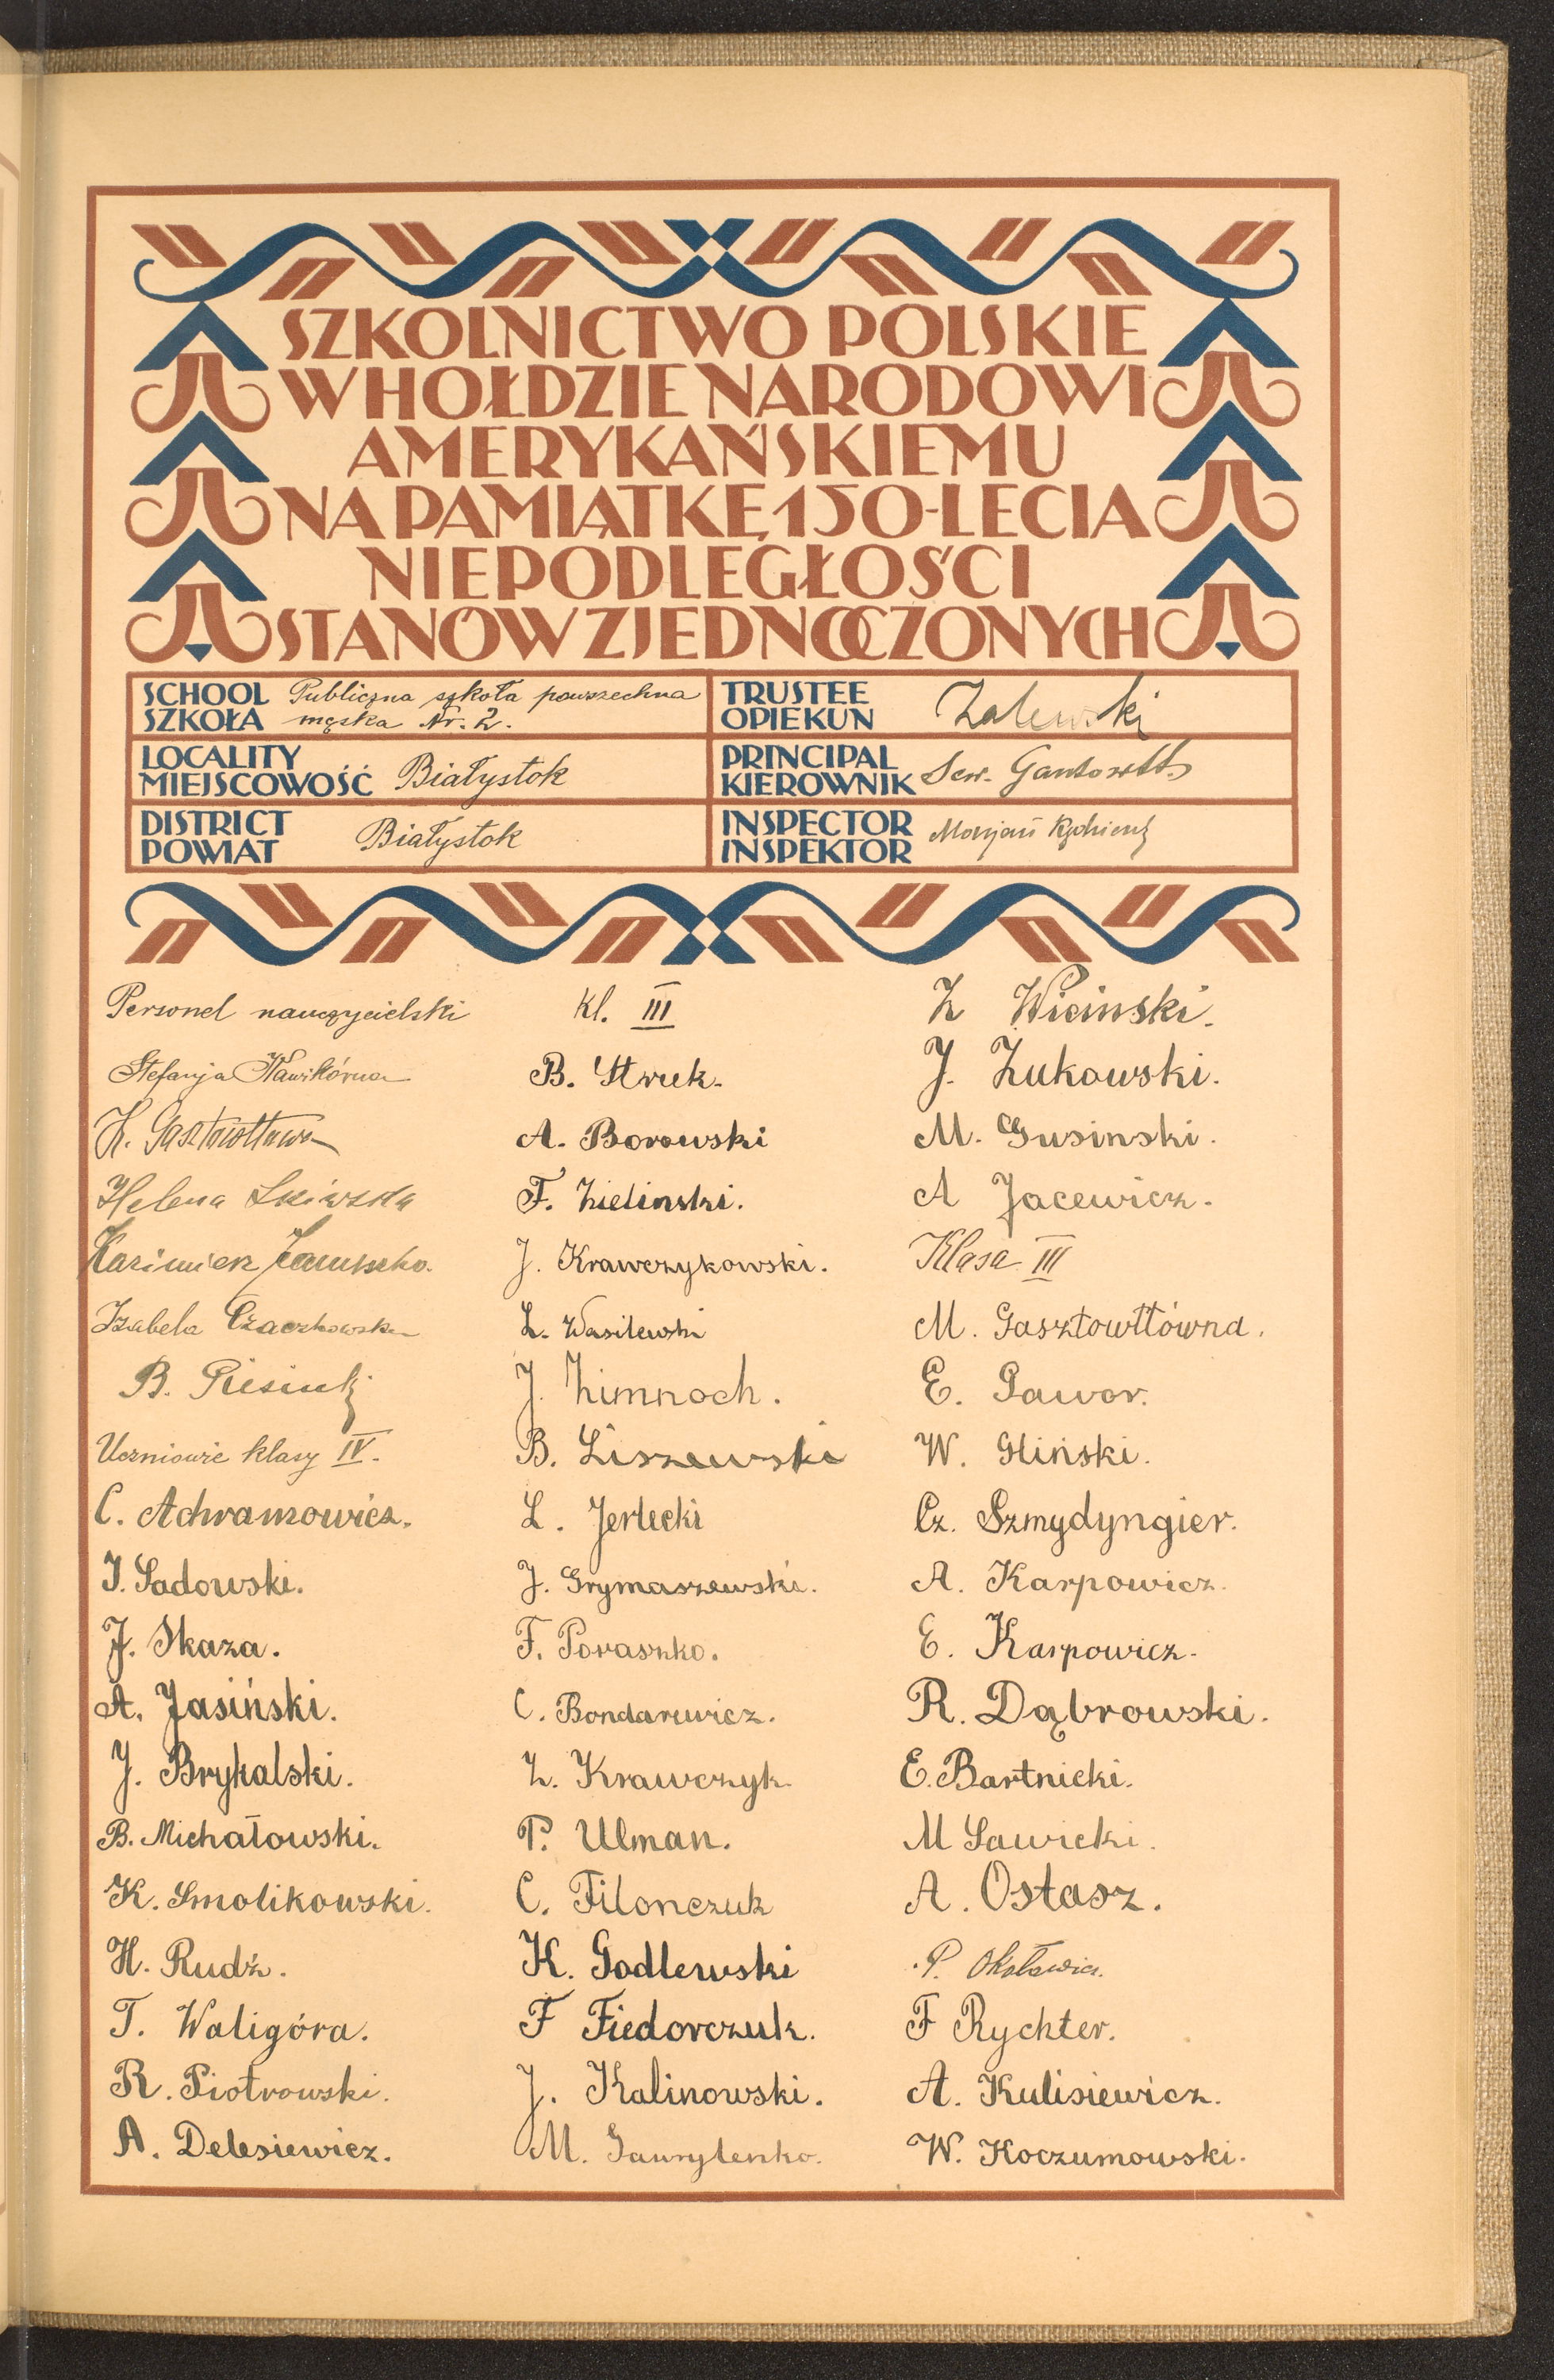 SZKOLNICTWO POLSKIE
W HOŁDZIE NARODOWI
AMERYKAŃSKIEMU
NA PAMIĄTKĘ 150-LECIA
NIEPODLEGŁOŚCI
STANÓW ZJEDNOCZONYCH
SCHOOL
SZKOŁA
Publiczna szkoła powszechna
męska Nr. 2.
TRUSTEE
OPIEKUN
Zalewski
LOCALITY
MIEJSCOWOŚĆ
Białystok
PRINCIPAL
KIEROWNIK
Sew.
DISTRICT
POWIAT
Białystok
INSPECTOR
INSPEKTOR
Marjan
Personel nauczycielski
Stefanja
H. Gasztowttowa
Helena
Kazimierz
Izabela Czaczkowska
B.
Uczniowie klasy IV.
C. Achramowicz.
J. Sadowski.
J. Skaza.
A. Jasiński.
J. Brykalski.
B. Michałowski.
K. Smolikowski.
H. Rudź.
T. Waligóra.
R. Piotrowski.
A. Delesiewicz.
kl. III
B.
A. Borowski
F. Zielinski.
J. Krawczykowski.
L. Wasilewski
J. Zimnoch.
B. Liszewski
L. Jerlecki
J. Grymaszewski.
F. Poraszko.
C. Bondarewicz.
Z. Krawczyk.
P. Ulman.
C. Filonczuk
K. Godlewski
F Fiedorczuk.
J. Kalinowski.
M. Gawrylenko.
Z Wicinski.
J. Zukowski.
M. Gusinski.
A Jacewicz.
Klasa III
M. Gasztowttówna.
E. Gawor.
W. Gliński.
Cz. Szmydyngier.
A. Karpowicz.
E. Karpowicz.
R. Dąbrowski.
E. Bartnicki.
M Sawicki.
A. Ostasz.
P.
F Rychter.
A. Kulisiewicz.
W. Koczumowski.